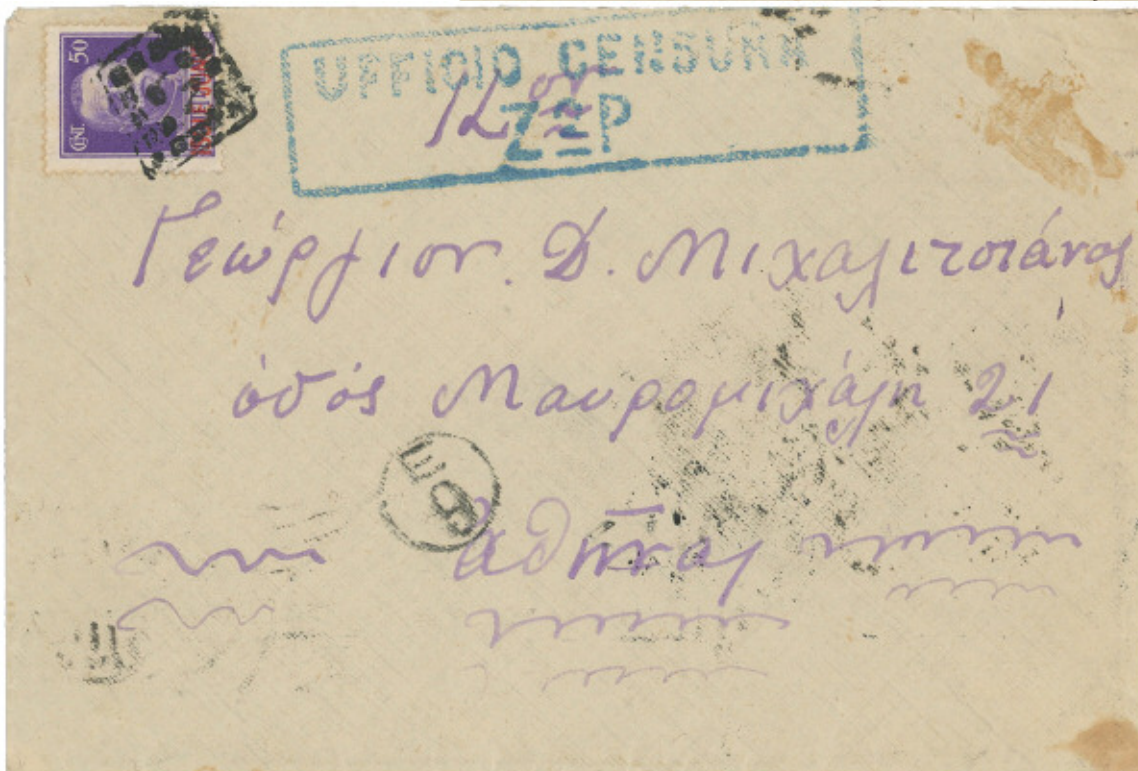 50
CENT.
UFFICIO CENSURA
12ον
ΖΞΡ
Γεώργιον. Δ. Μιχαλιτσιάνος
ὁδός Μαυρομιχάλη 21
6E
Ἀθήνας